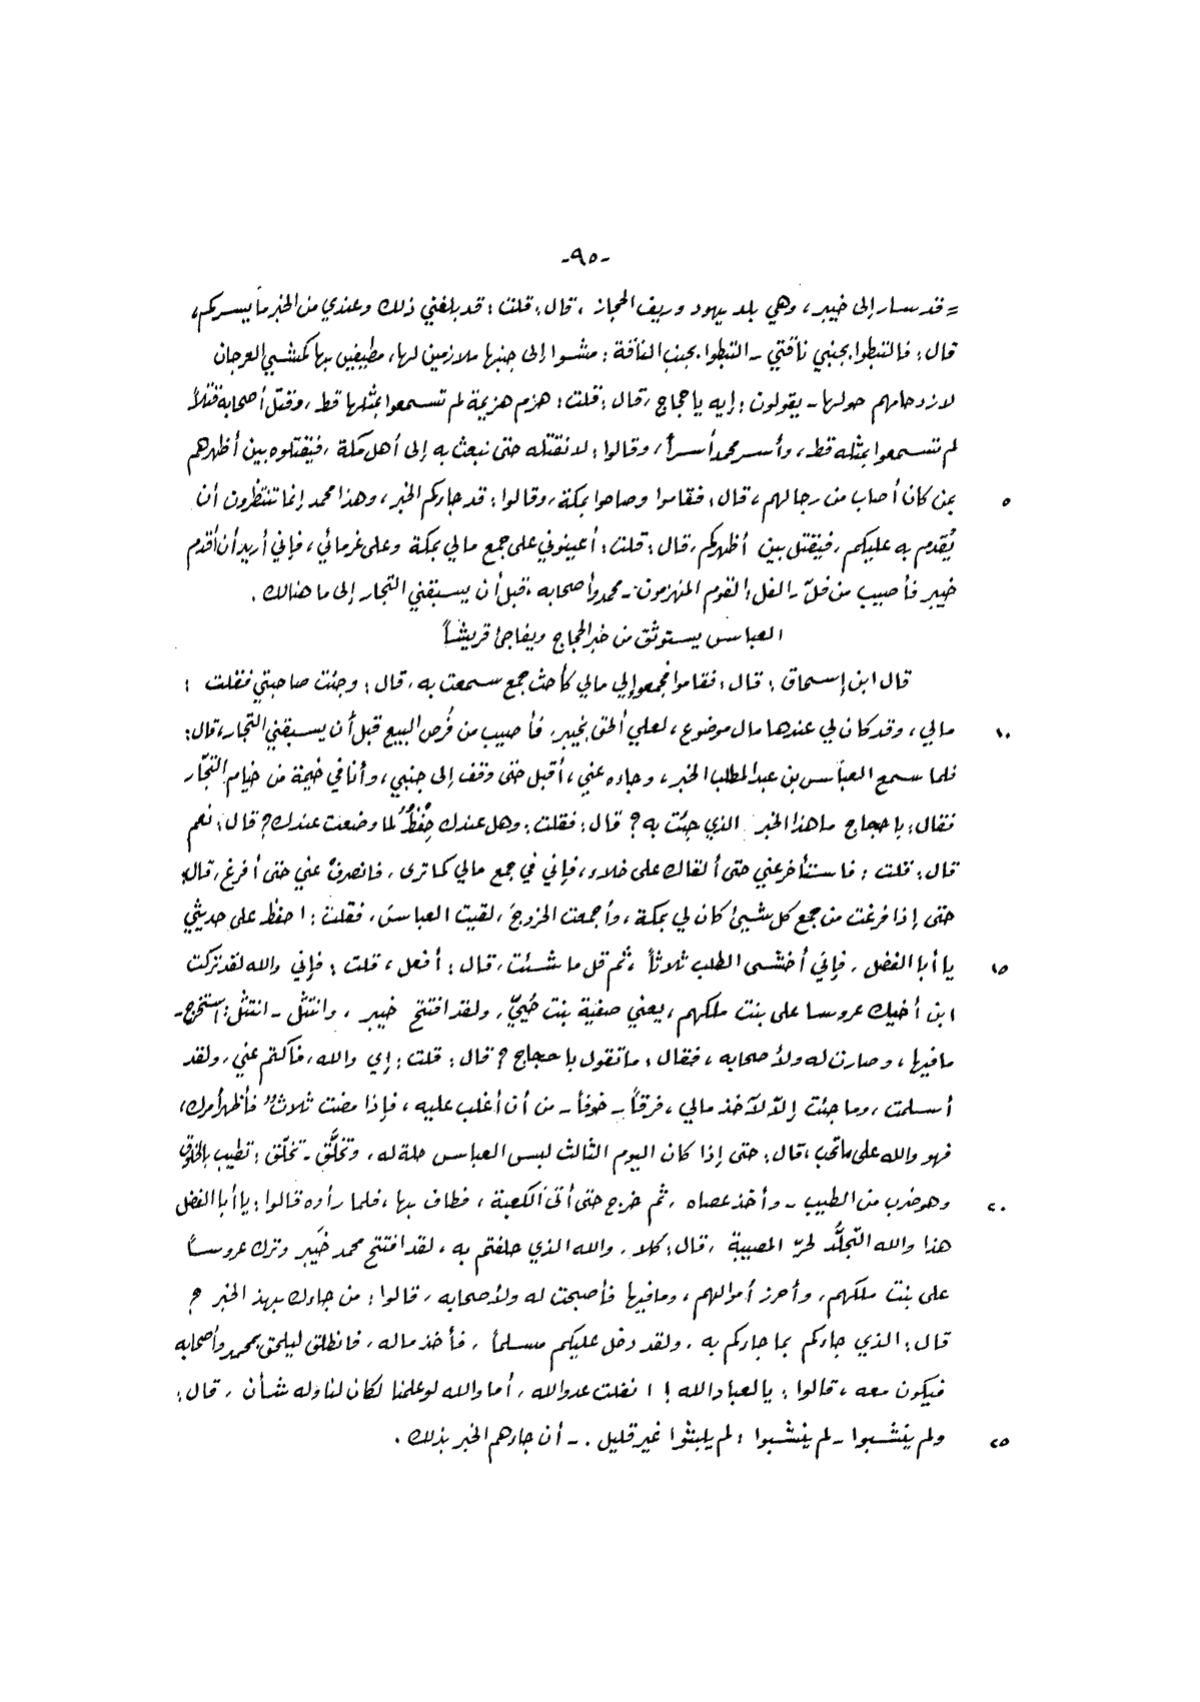 -٩٥-
= قد سار إلى خيبر، وهي بلد يهود وريف الحجاز، قال: قلت: قد بلغني ذلك وعندي من الخبر ما يسركم،
قال: فالتبطوا بجنبي ناقتي - التبطوا بجنب الناقة: مشوا إلى جنبها ملازمين لها، مطيفين بها كمشي العرجان
لازدحامهم حولها - يقولون: إيه يا حجاج، قال: قلت: هزم هزيمة لم تسمعوا بمثلها قط، وقتل أصحابه قتلاً
لم تسمعوا بمثله قط، وأسر محمد أسراً، وقالوا: لا نقتله حتى نبعث به إلى أهل مكة، فيقتلوه بين أظهرهم
٥ بمن كان أصاب من رجالهم، قال: فقاموا وصاحوا بمكة، وقالوا: قد جاءكم الخبر، وهذا محمد إنما تنتظرون أن
يُقدم به عليكم، فيقتل بين أظهركم، قال: قلت: أعينوني على جمع مالي بمكة وعلى غرمائي، فإني أريد أن أقدم
خيبر فأصيب من فلّ - الفل: القوم المنهزمون - محمد وأصحابه، قبل أن يسبقني التجار إلى ما هنالك.
العباس يستوثق من خبر الحجاج ويفاجئ قريشاً
قال ابن إسحاق: قال: فقاموا فجمعوا إلي مالي كأحث جمع سمعت به، قال: وجئت صاحبتي فقلت:
١٠ مالي، وقد كان لي عندها مال موضوع، لعلي ألحق بخيبر، فأصيب من فُرص البيع قبل أن يسبقني التجار، قال:
فلما سمع العباس بن عبد المطلب الخبر، وجاءه عني، أقبل حتى وقف إلى جنبي، وأنا في خيمة من خيام التجّار
فقال: يا حجاج ما هذا الخبر الذي جئت به؟ قال: فقلت: وهل عندك حِفْظٌ لما وضعت عندك؟ قال: نعم
قال: قلت: فاستأخر عني حتى ألقاك على خلاء، فإني في جمع مالي كما ترى، فانصرف عني حتى أفرغ، قال:
حتى إذا فرغت من جمع كل شيئ كان لي بمكة، وأجمعت الخروج، لقيت العباس، فقلت: احفظ على حديثي
١٥ يا أبا الفضل، فإني أخشى الطلب ثلاثاً، ثم قل ما شئت، قال: أفعل، قلت: فإني والله لقد تركت
ابن أخيك عروسا على بنت ملكهم، يعني صفية بنت حُييّ، ولقد افتتح خيبر، وانتثل - انتثل: استخرج -
ما فيها، وصارت له ولأصحابه، فقال: ما تقول يا حجاج؟ قال: قلت: إي والله، فاكتم عني، ولقد
أسلمت، وما جئت إلاّ لآخذ مالي، فرقاً - خوفاً - من أن أغلب عليه، فإذا مضت ثلاثٌ فأظهر أمرك،
فهو والله على ما تحب، قال: حتى إذا كان اليوم الثالث لبس العباس حلة له، وتخلَّق - تخلّق: تطيب بالخلوق
٢٠ وهو ضرب من الطيب - وأخذ عصاه، ثم خرج حتى أتى الكعبة، فطاف بها، فلما رأوه قالوا: يا أبا الفضل
هذا والله التجلُّد لحرّ المصيبة، قال: كلا، والله الذي حلفتم به، لقد افتتح محمد خيبر وترك عروساً
على بنت ملكهم، وأحرز أموالهم، وما فيها فأصبحت له ولأصحابه، قالوا: من جاءك بهذا الخبر؟
قال: الذي جاءكم بما جاءكم به، ولقد دخل عليكم مسلماً، فأخذ ماله، فانطلق ليلحق بمحمد وأصحابه
فيكون معه، قالوا: يا لعباد الله!! انفلت عدو الله، أما والله لو علمنا لكان لنا وله شأن، قال:
٢٥ ولم ينشبوا - لم ينشبوا: لم يلبثوا غير قليل. - أن جاءهم الخبر بذلك.